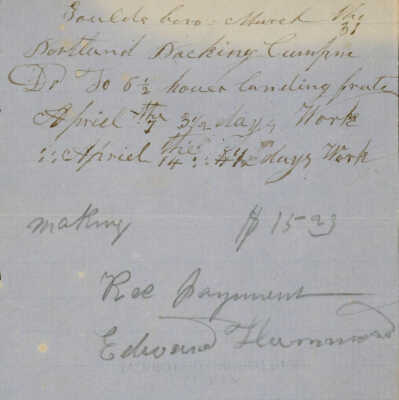 Goulds boro. March the 31
Portland Packing Cumpne
Dr To 6 1/2 houer landing frate
Apriel the 7 3 1/2 days Work
" Apriel the 14 " 4 1/2 days Work
making $ 15-23
Rec payment
Edward Hammond